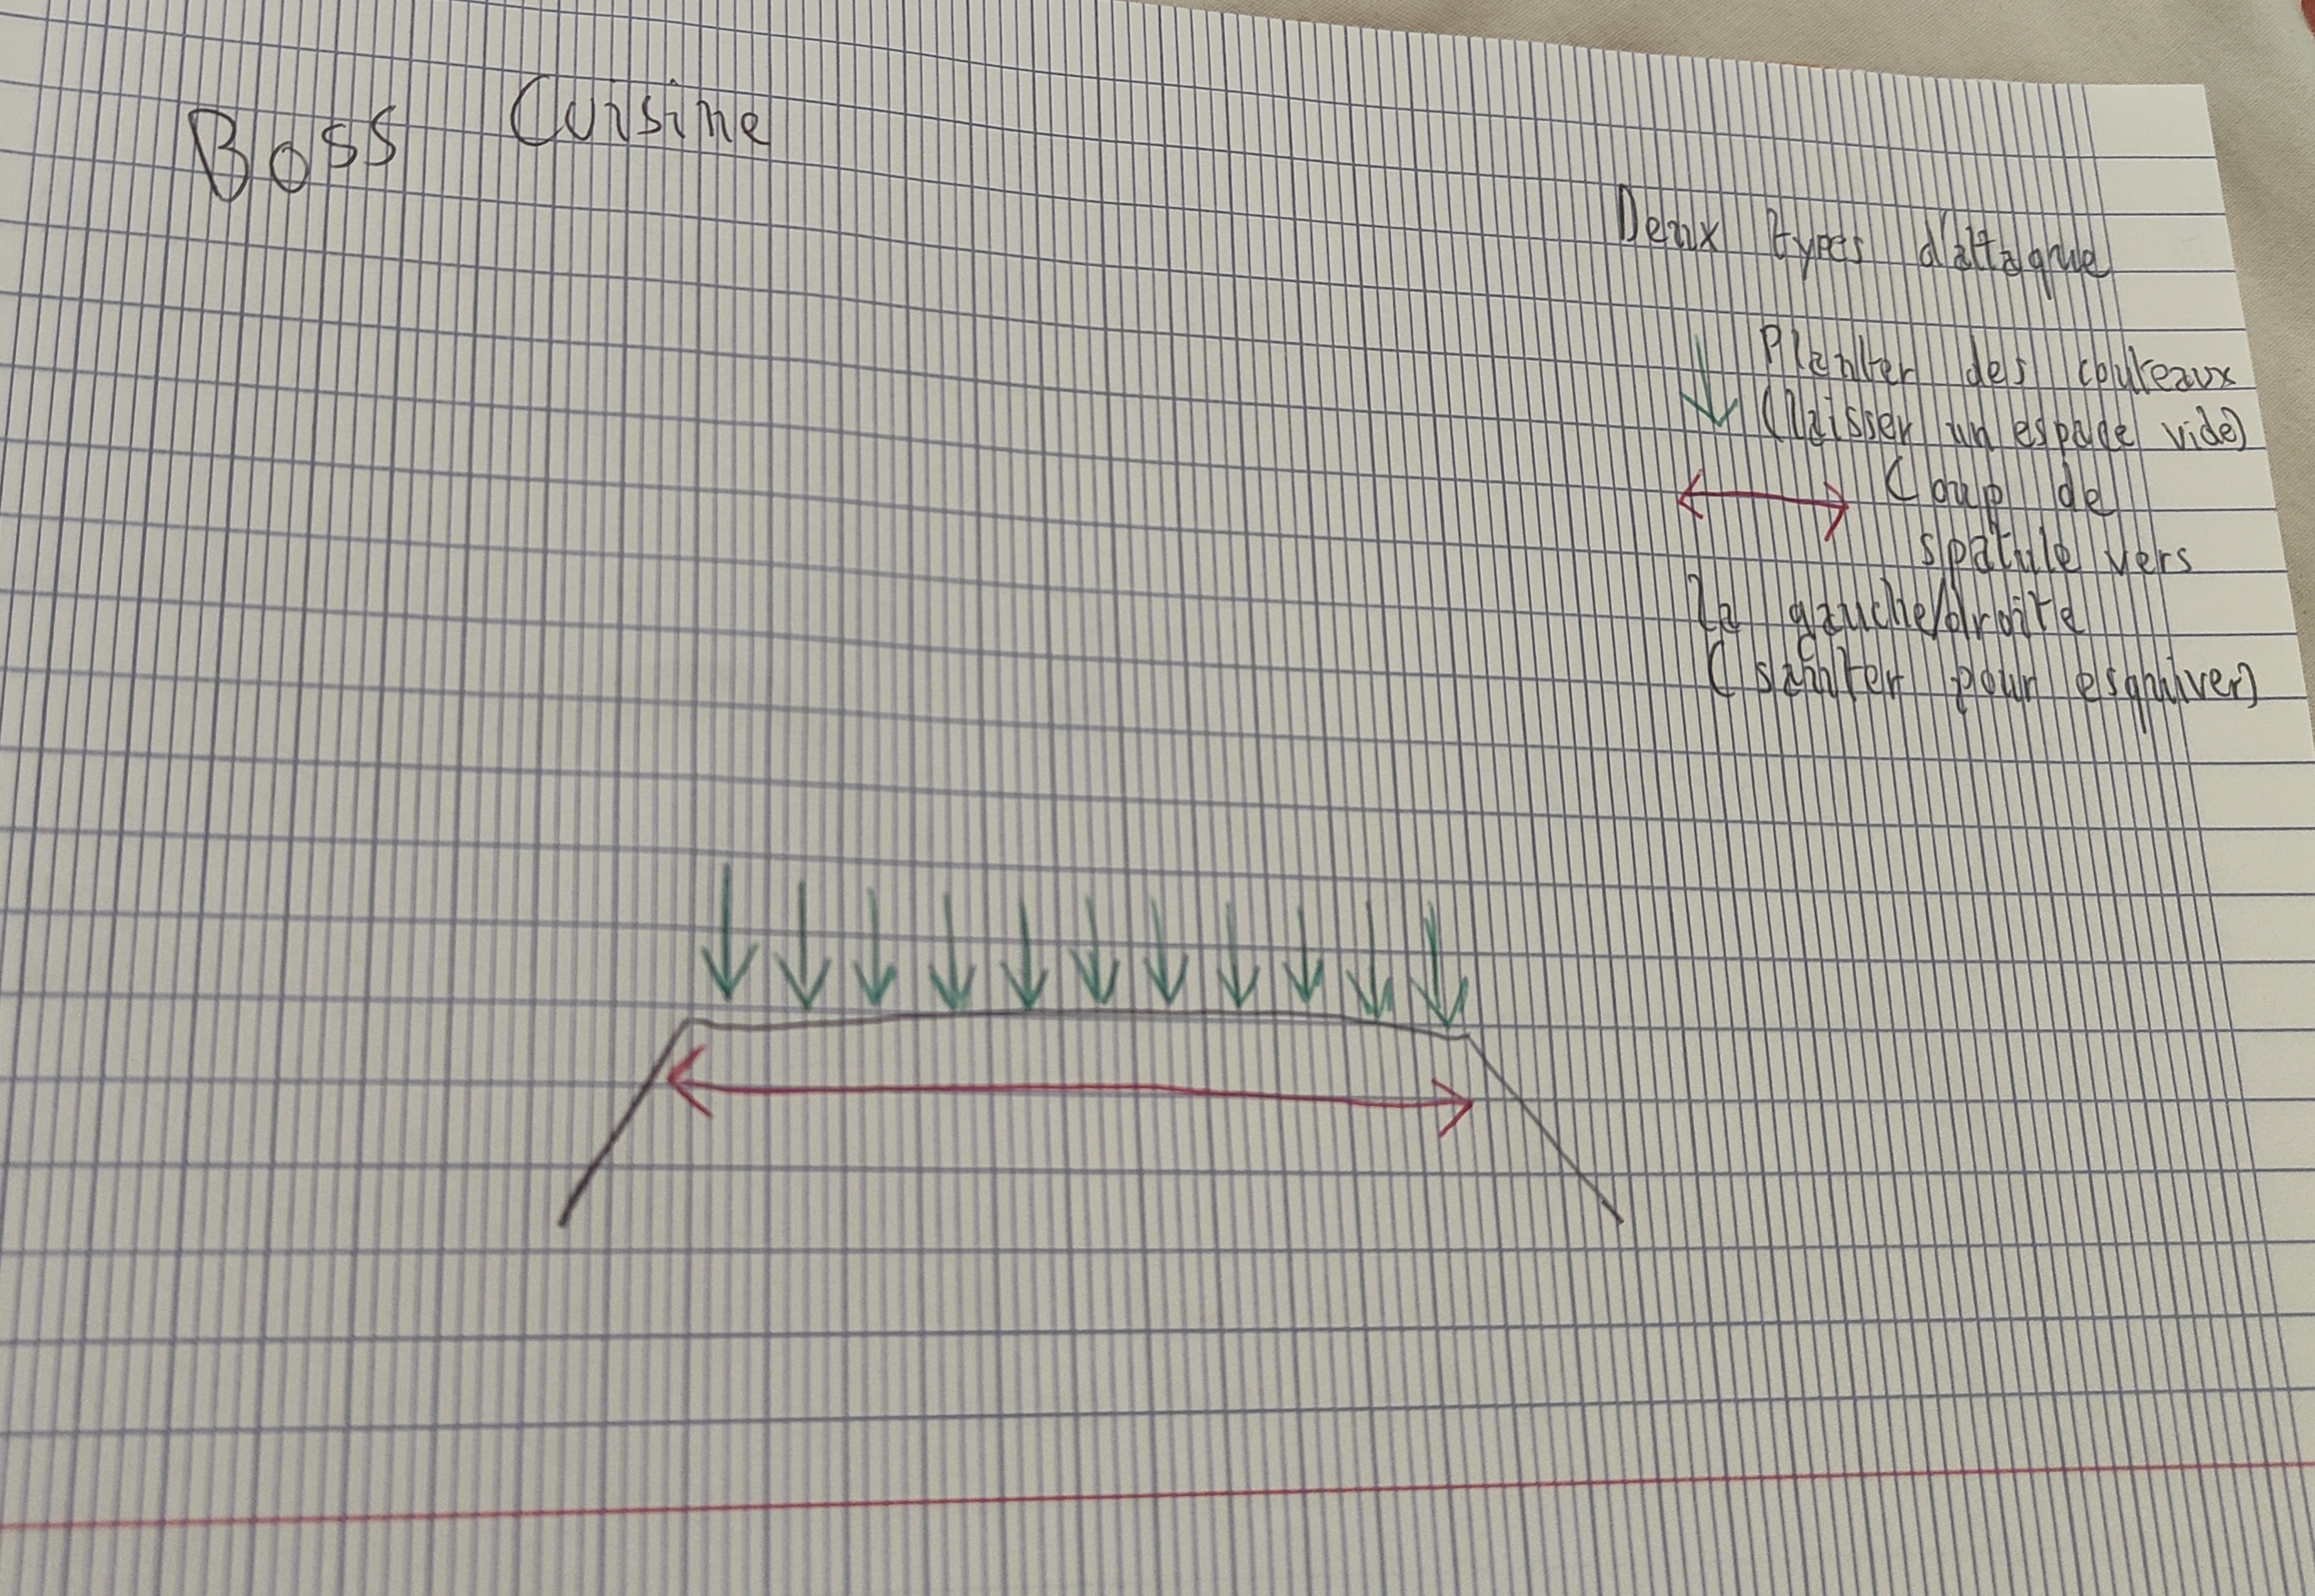 Boss Cuisine
Deux types d'attaque
Planter des couteaux
(laisser un espace vide)
Coup de
spatule vers
la gauche/droite
(sauter pour esquiver)